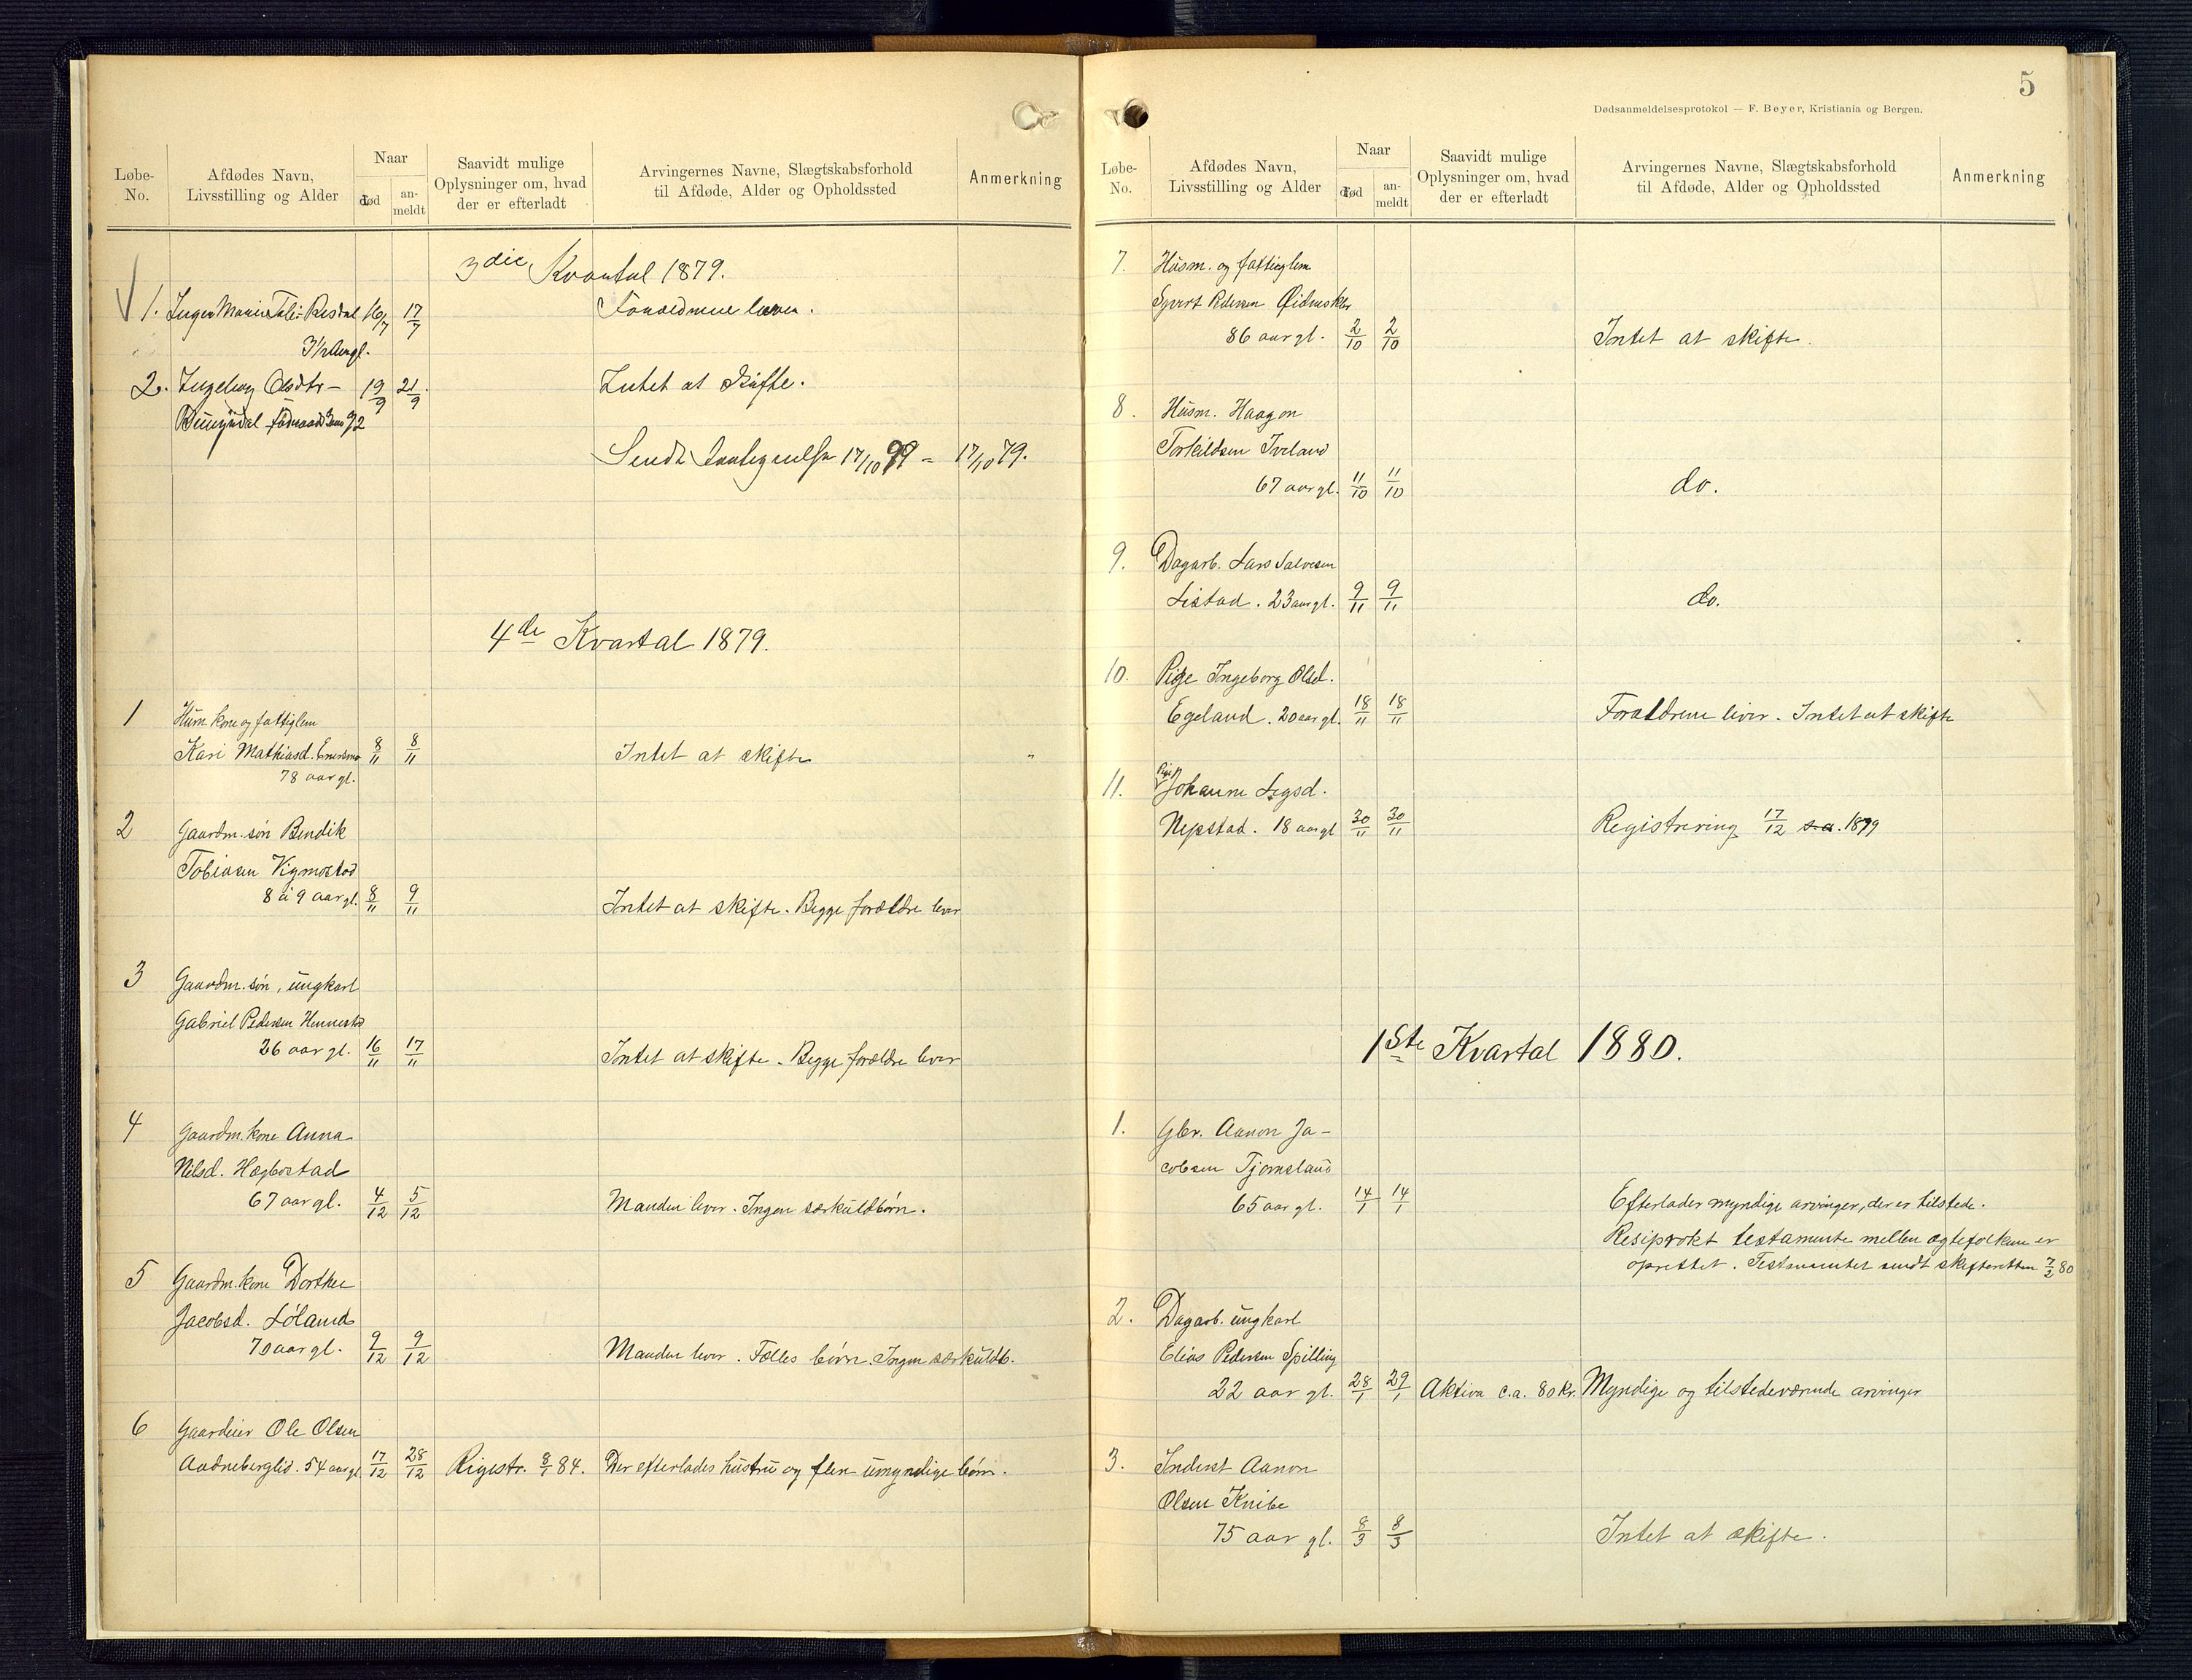 Løbe-No.
Afdødes Navn, Livsstilling og Alder
Naar
død
an-meldt
Saavidt mulige Oplysninger om, hvad der er efterladt
Arvingernes Navne, Slægtskabsforhold til Afdøde, Alder og Opholdssted
Anmerkning
3die Kvartal 1879.
1. Inger Marie 16/7 17/7 Forældrene lever.
3½ Aar gl.
2. Ingeborg Olsdtr - 19/9 21/9 Intet at Skifte.
Sendt 17/10 79 - 17/10 79.
4de Kvartal 1879.
1 Husm. kone og fattiglem
Kari Mathiasd. 8/11 8/11 Intet at skifte "
78 aar gl.
2 Gaardm. søn Bendik
Tobiasen Vigmostad
8 à 9 aar gl. 8/11 9/11 Intet at skifte. Begge forældre lever
3 Gaardm. søn, ungkarl
Gabriel Pedersen Hennestad
26 aar gl. 16/11 17/11 Intet at skifte. Begge forældre lever
4 Gaardm. kone Anna
Nilsd. Hægbostad
67 aar gl. 4/12 5/12 Manden lever. Ingen særkuldbørn.
5 Gaardm. kone Dorthee
Jacobsd. Løland
70 aar gl. 9/12 9/12 Manden lever. Fælles børn. Ingen særkuldb.
6 Gaardeier Ole Olsen
Aadneberglid. 54 aar gl 17/12 28/12 Rigestr. 8/1 84. Der efterlades hustru og flere umyndige børn.
5
Dødsanmeldelsesprotokol — F. Beyer, Kristiania og Bergen.
Løbe-No.
Afdødes Navn, Livsstilling og Alder
Naar
død
an-meldt
Saavidt mulige Oplysninger om, hvad der er efterladt
Arvingernes Navne, Slægtskabsforhold til Afdøde, Alder og Opholdssted
Anmerkning
7. Husm. og fattiglem
Syvert Pedersen
86 aar gl. 2/10 2/10 Intet at skifte.
8. Husm. Haagon
Torkildsen Iveland
67 aar gl. 11/10 11/10 do.
9. Dagarb. Lars Salvesen
Listad. 23 aar gl. 9/11 9/11 do.
10. Pige Ingeborg Olsd.
Egeland. 20 aar gl. 18/11 18/11 Forældrene lever. Intet at skifte
11. Pige Johanne Sigsd.
Nepstad. 18 aar gl 30/11 30/11 Registrering 17/12 s.a. 1879
1ste Kvartal 1880.
1. Gbr. Aanon Ja-
cobsen Tjomsland
65 aar gl. 14/1 14/1 Efterlader myndige arvinger, der er tilstede.
Resiprokt testamente mellem ægtefolkene er
oprettet. Testamentet sendt skifteretten 7/2 80
2. Dagarb. ungkarl
Elias Pedersen Spilling
22 aar gl. 28/1 29/1 Aktiva c.a. 80 Kr. Myndige og tilstedeværende arvinger
3. Inderst Aanon
Olsen Knibe
75 aar gl. 8/3 8/3 Intet at skifte.